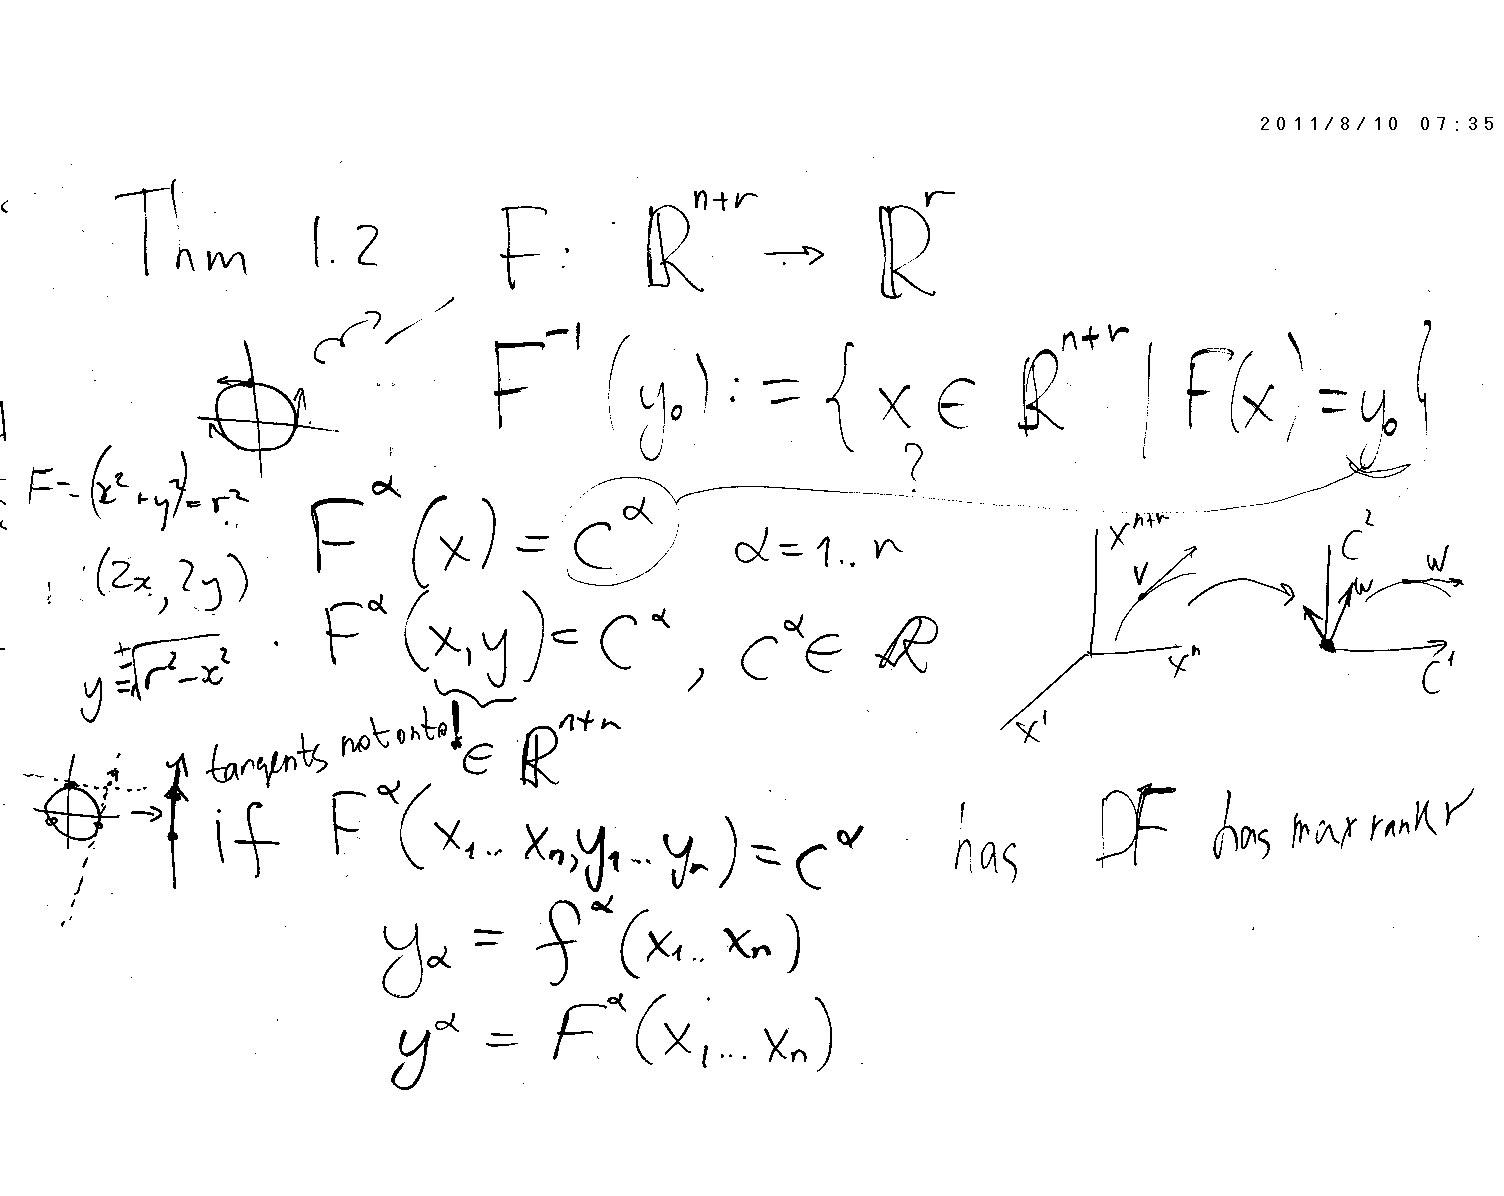 2011/8/10 07:35
Thm 1.2 F: ℝⁿ⁺ʳ → ℝʳ
F⁻¹(y₀) := { x ∈ ℝⁿ⁺ʳ | F(x) = y₀ }
?
F = (x² + y²) = r²
F^α(x) = C^α α = 1..r
(2x, 2y)
F^α(x, y) = C^α, C^α ∈ ℝ
y = ±√(r² - x²)
xⁿ⁺ʳ
v
xⁿ
x¹
C²
w
w
C¹
tangents not onto!
∈ ℝⁿ⁺ʳ
if F^α(x₁.. xₙ, y₁... yᵣ) = C^α has DF has max rank r
y_α = f^α(x₁.. xₙ)
y^α = F^α(x₁... xₙ)